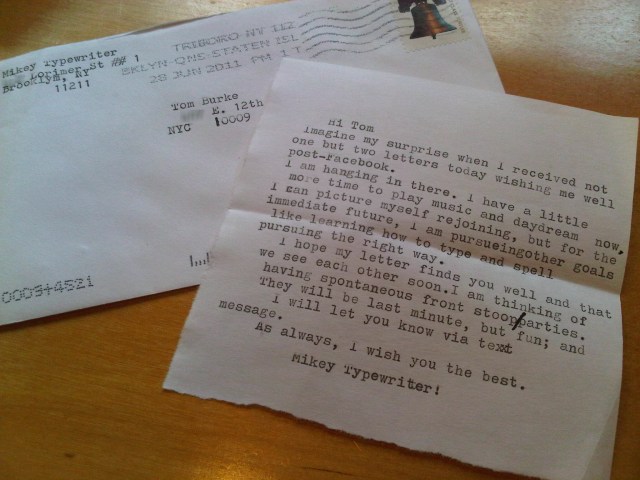 Mikey Typewriter
Lorimer St ## 1
Brooklym, NY
11211
TRIBORO NY 112
BKLYN-QNS-STATEN ISL
28 JUN 2011 PM 1 T
Tom Burke
E. 12th
NYC 10009
00094521
Hi Tom
Imagine my surprise when I received not
one but two letters today wishing me well
post-Facebook.
I am hanging in there. I have a little
more time to play music and daydream now,
I can picture myself rejoining, but for the
immediate future, I am pursueingother goals
like learning how to type and spell
pursuing the right way.
I hope my letter finds you well and that
we see each other soon.I am thinking of
having spontaneous front stoop/parties.
They will be last minute, but fun; and
I will let you know via text
message.
As always, I wish you the best.
Mikey Typewriter!